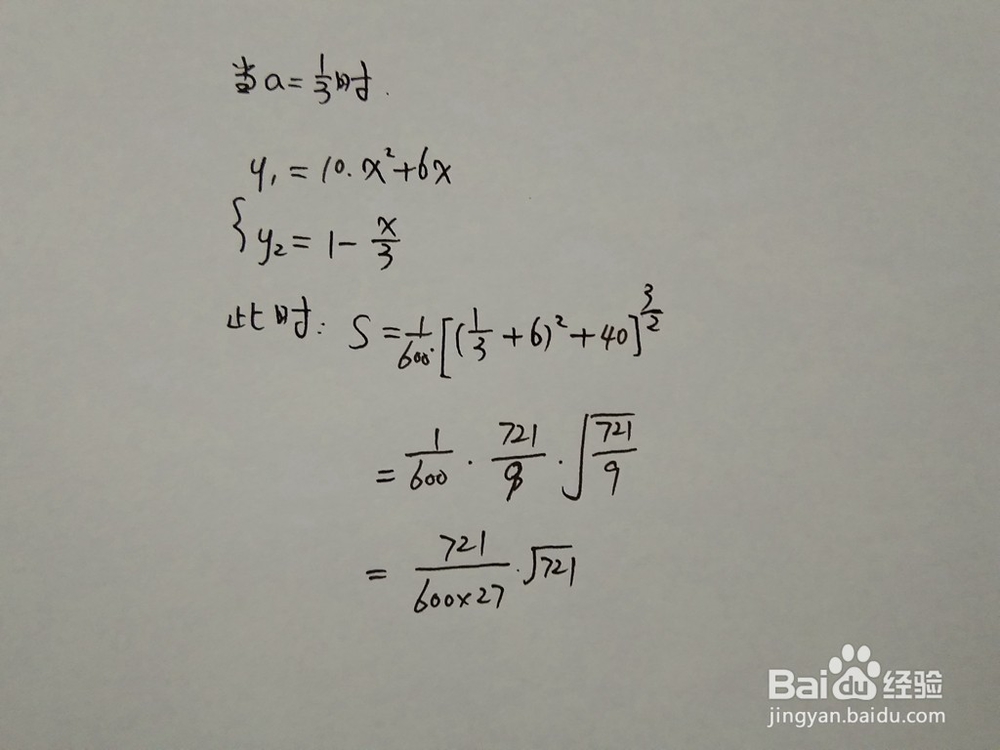 当a=1/3时.
y₁=10.x²+6x
{y₂=1-x/3
此时: S=1/600·[(1/3+6)²+40]^(3/2)
=1/600·721/9·√(721/9)
=721/(600×27)·√721
Baidu经验
jingyan.baidu.com